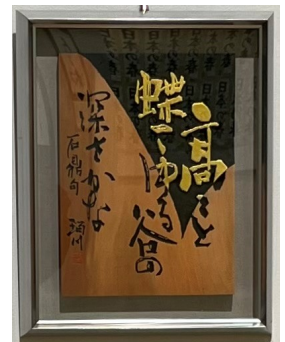 高々と
蝶こゆる谷の
深さかな
石鼎句